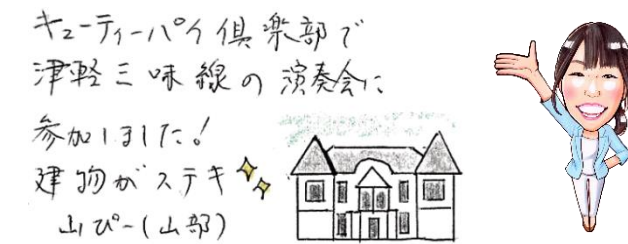 キューティーパイ倶楽部で
津軽三味線の演奏会に
参加しました!
建物がステキ
山ぴー(山部)